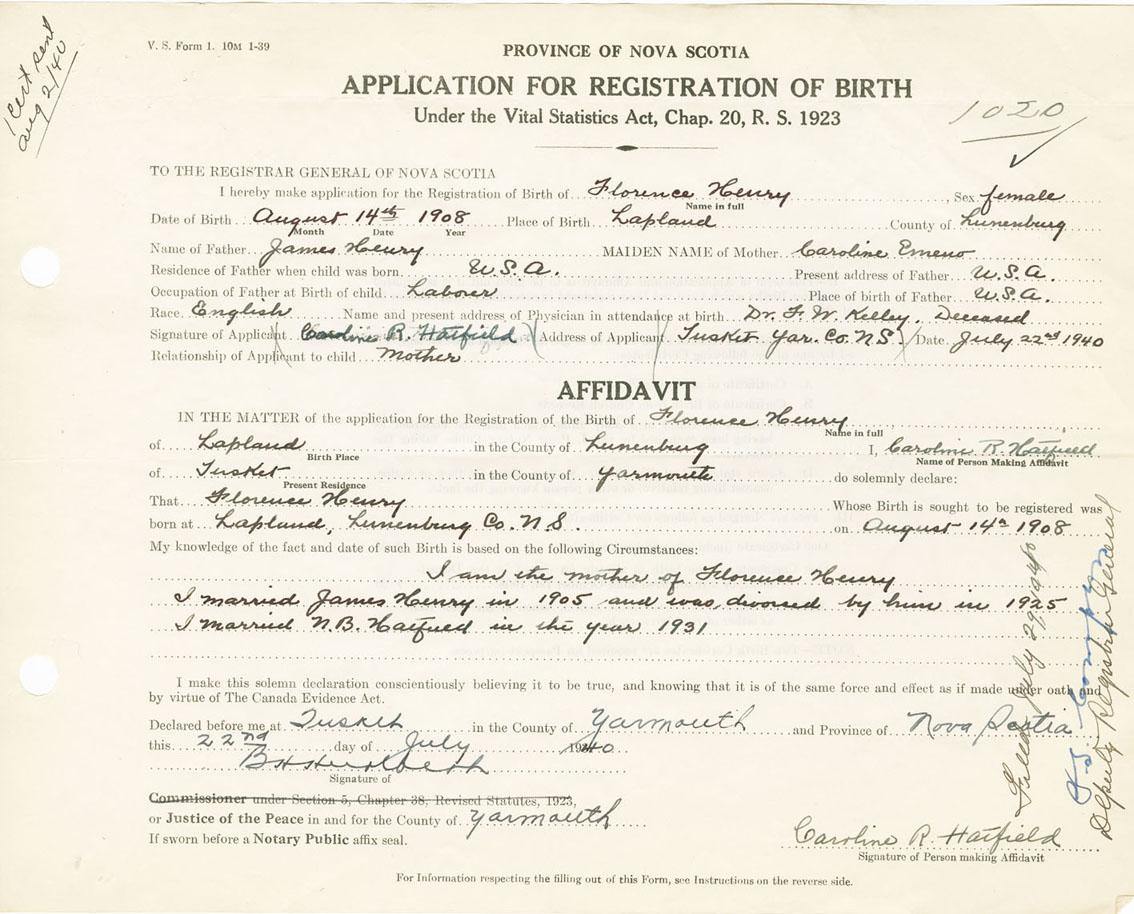 1 Cert sent
Aug 2/40
V. S. Form 1. 10M 1-39
PROVINCE OF NOVA SCOTIA
APPLICATION FOR REGISTRATION OF BIRTH
Under the Vital Statistics Act, Chap. 20, R. S. 1923
1020
TO THE REGISTRAR GENERAL OF NOVA SCOTIA
I hereby make application for the Registration of Birth of Florence Henry, Sex female
Name in full
Date of Birth August 14th 1908 Place of Birth Lapland County of Lunenburg
Month Date Year
Name of Father James Henry MAIDEN NAME of Mother Caroline Emeno
Residence of Father when child was born U.S.A. Present address of Father U.S.A.
Occupation of Father at Birth of child Laborer Place of birth of Father U.S.A.
Race English Name and present address of Physician in attendance at birth Dr. F. W. Kelley. Deceased
Signature of Applicant Caroline R. Hatfield Address of Applicant Tusket Yar. Co. N.S. Date July 22nd 1940
Relationship of Applicant to child Mother
AFFIDAVIT
IN THE MATTER of the application for the Registration of the Birth of Florence Henry
Name in full
of Lapland in the County of Lunenburg I, Caroline R. Hatfield
Birth Place Name of Person Making Affidavit
of Tusket in the County of Yarmouth do solemnly declare:
Present Residence
That Florence Henry Whose Birth is sought to be registered was
born at Lapland, Lunenburg Co. N.S. on August 14th 1908
My knowledge of the fact and date of such Birth is based on the following Circumstances:
I am the mother of Florence Henry
I married James Henry in 1905 and was divorsed by him in 1925
I married N.B. Hatfield in the year 1931
I make this solemn declaration conscientiously believing it to be true, and knowing that it is of the same force and effect as if made under oath and
by virtue of The Canada Evidence Act.
Declared before me at Tusket in the County of Yarmouth and Province of Nova Scotia
this 22nd day of July 1940
Signature of
Commissioner under Section 5, Chapter 38, Revised Statutes, 1923,
or Justice of the Peace in and for the County of Yarmouth
If sworn before a Notary Public affix seal.
Caroline R. Hatfield
Signature of Person making Affidavit
For Information respecting the filling out of this Form, see Instructions on the reverse side.
Filed July 29, 1940
Deputy Registrar General